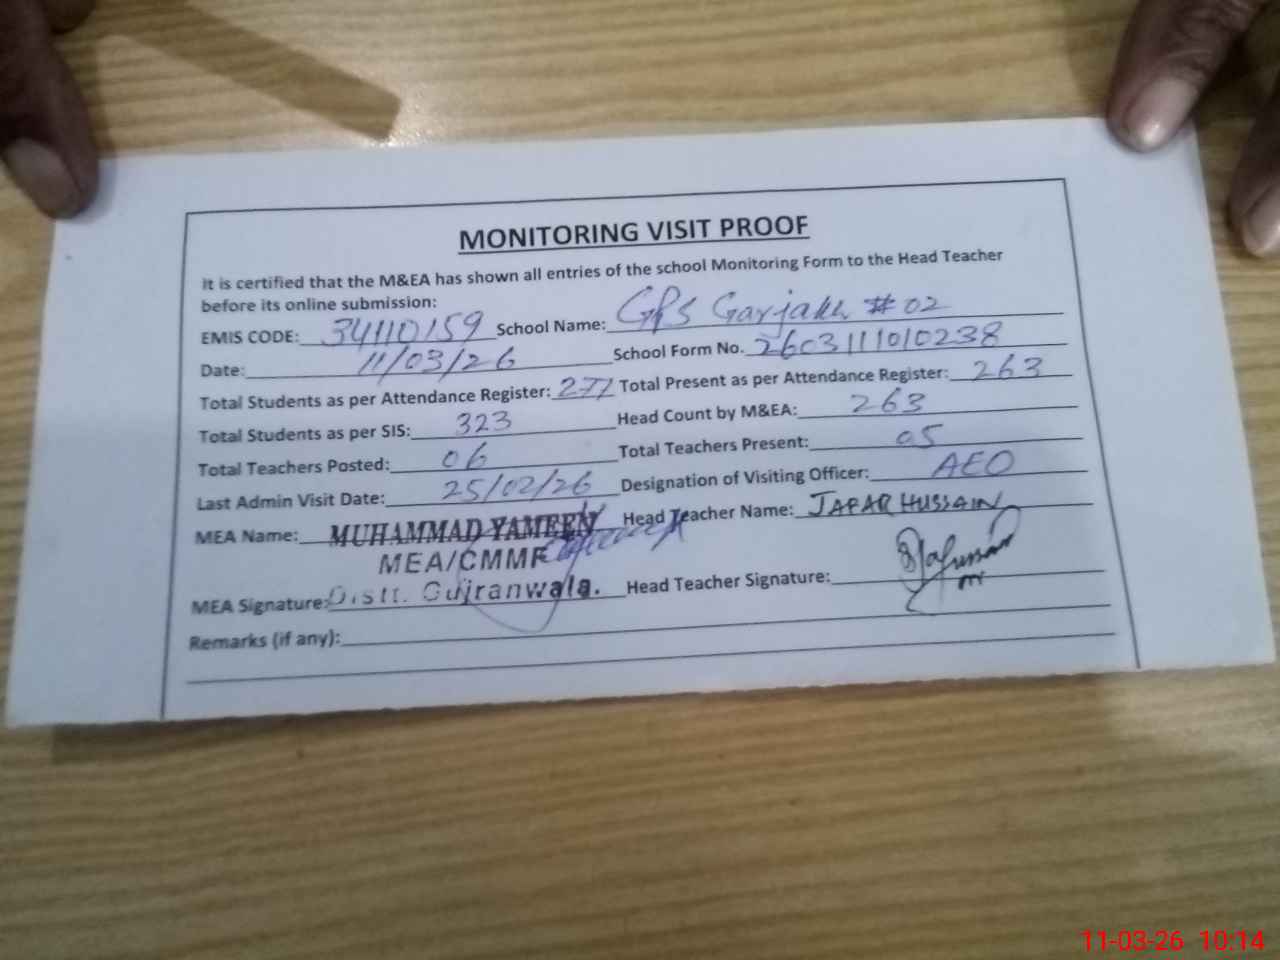 MONITORING VISIT PROOF
It is certified that the M&EA has shown all entries of the school Monitoring Form to the Head Teacher
before its online submission:
EMIS CODE: 34110159 School Name: GPS Garjakh # 02
Date: 11/03/26 School Form No. 2603111010238
Total Students as per Attendance Register: 277 Total Present as per Attendance Register: 263
Total Students as per SIS: 323 Head Count by M&EA: 263
Total Teachers Posted: 06 Total Teachers Present: 05
Last Admin Visit Date: 25/02/26 Designation of Visiting Officer: AEO
MEA Name: MUHAMMAD YAMEEN Head Teacher Name: JAFAR HUSSAIN
MEA/CMMF
MEA Signature: Distt. Gujranwala. Head Teacher Signature:
Remarks (if any):
11-03-26 10:14